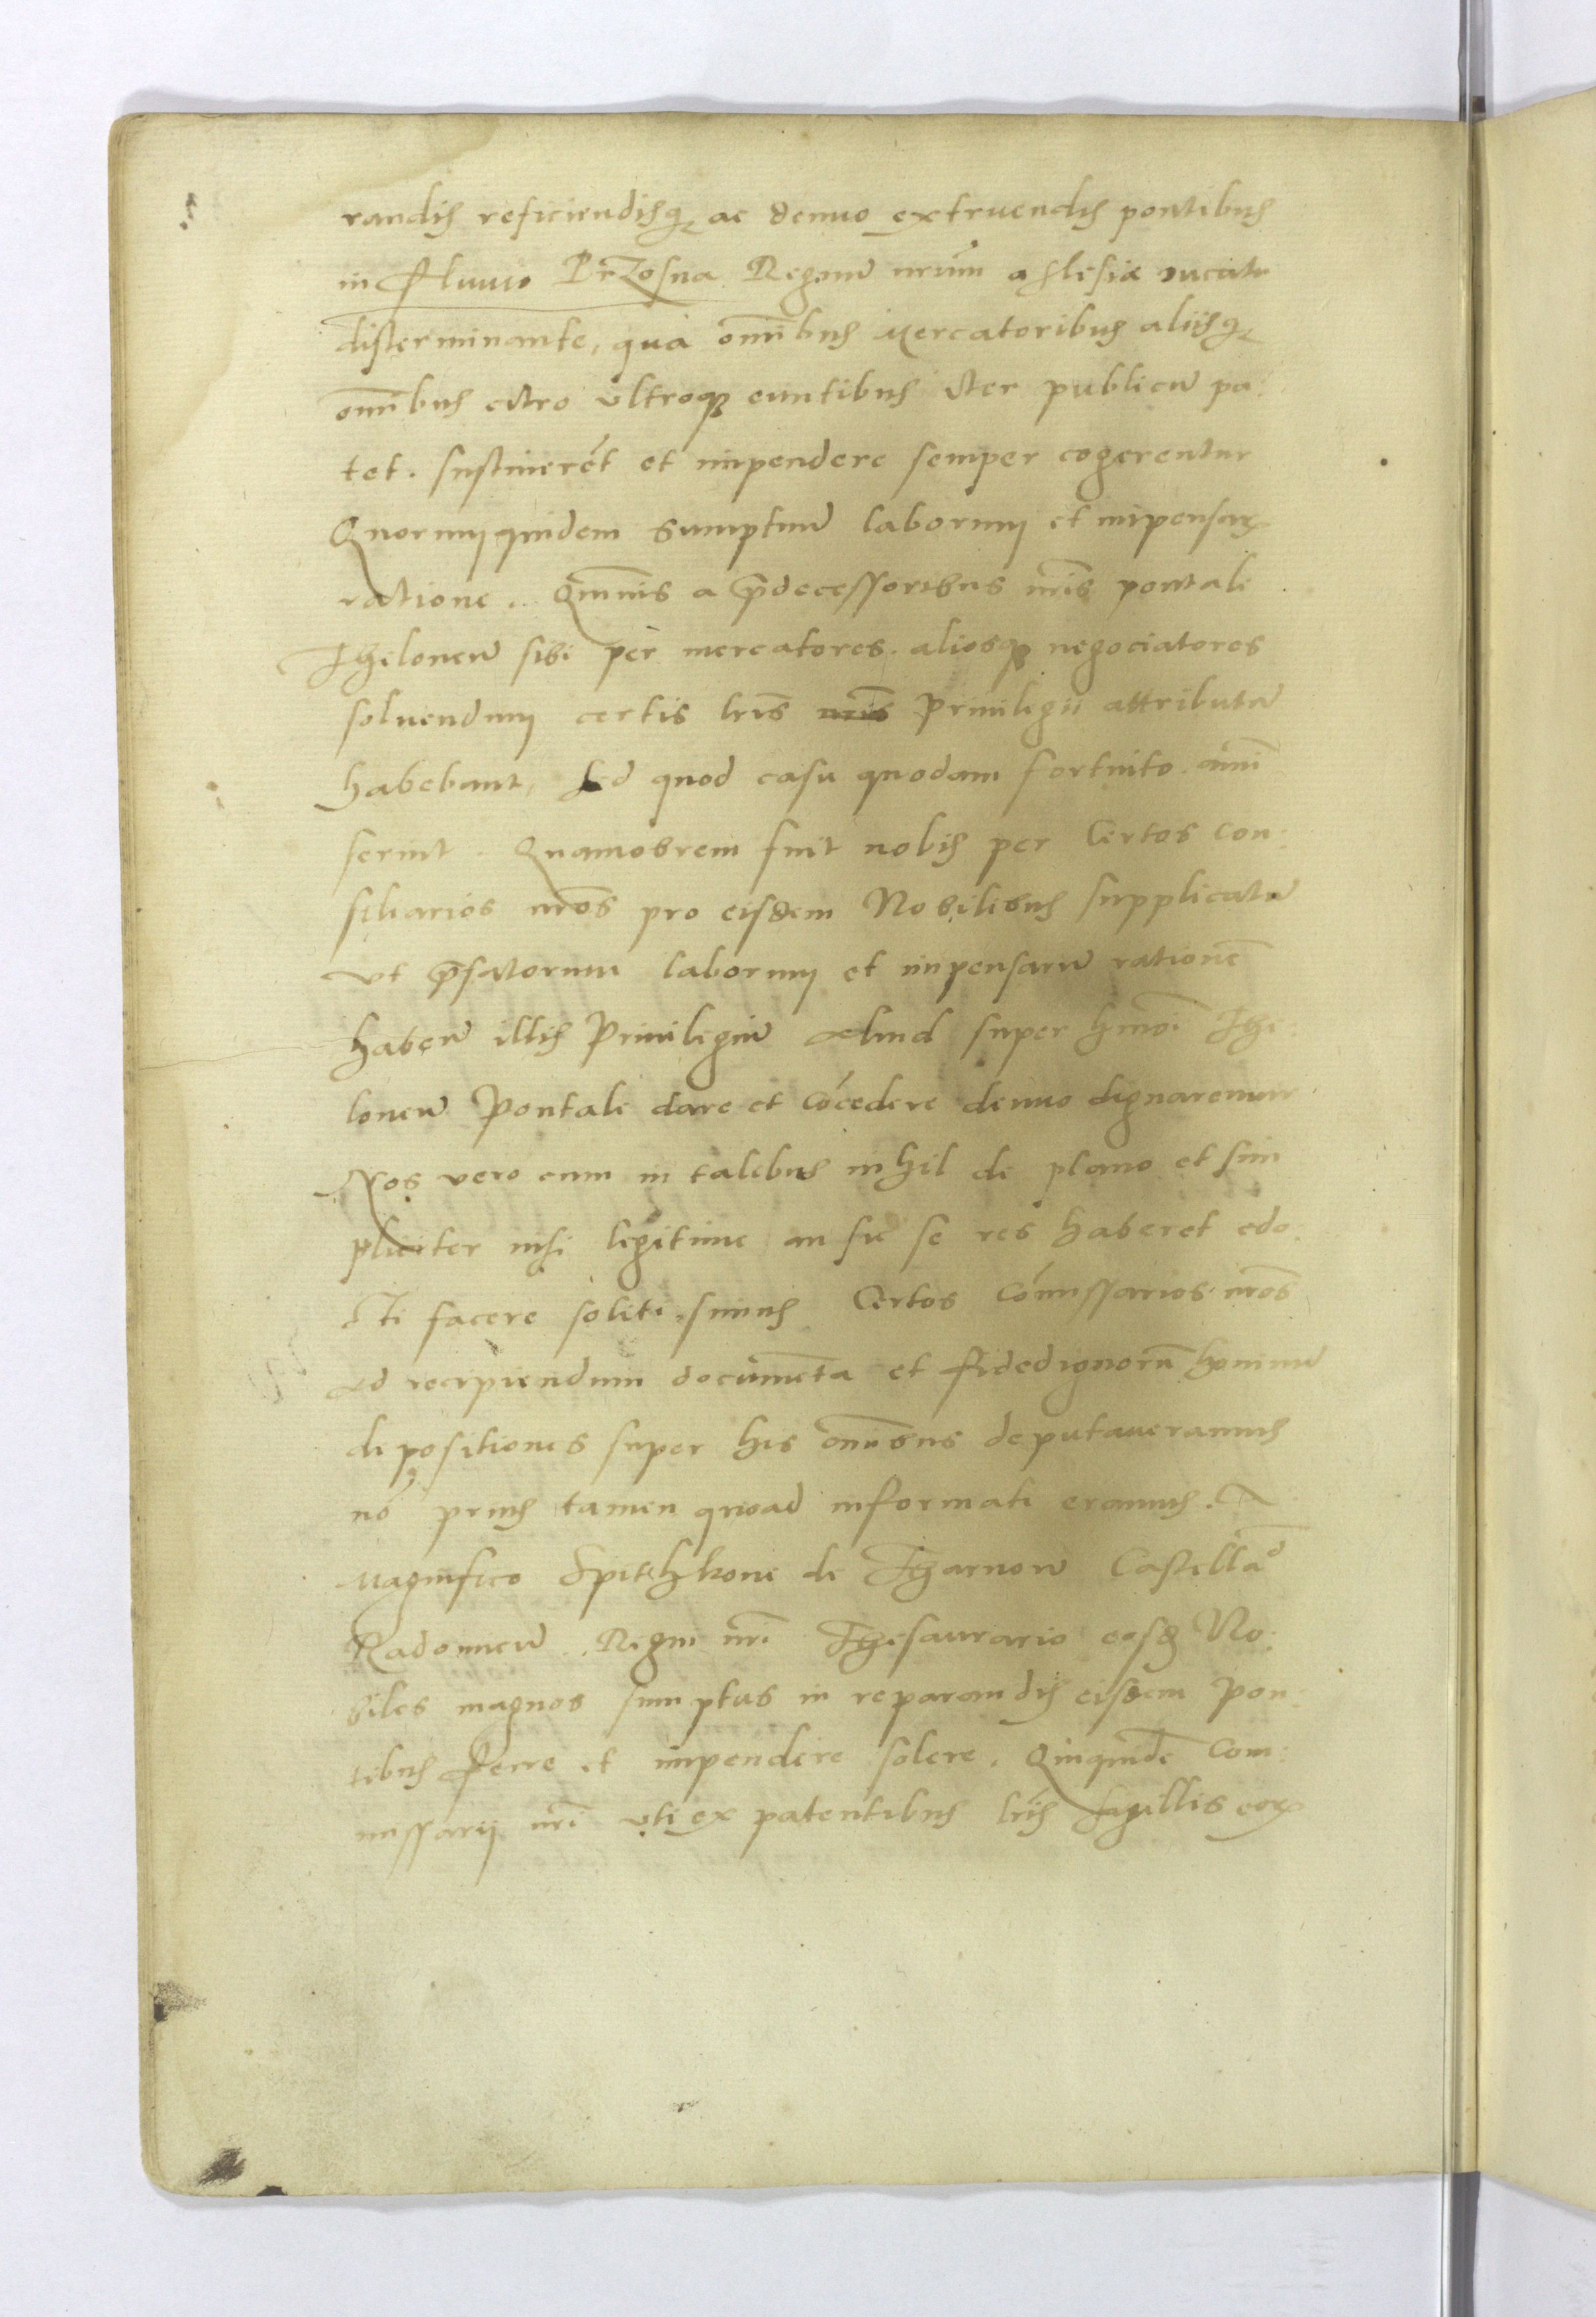 randis reficiendisq₃ ac denuo extruendis pontibus
in Fluuio Przosna Regnū nrūm a slesiæ ducatu
disterminante, qua om̄ibus Mercatoribus aliisq₃
om̄ibus citro vltroq₃ euntibus iter publicū pa:
tet. sustinerēt et impendere semper cogerentur
Quorum quidem sumptuū laborum et impensarꝝ
ratione. Quāuis a p̄decessoribus nr̄is pontale
Theloneū sibi per mercatores. aliosq₃ negociatores
soluendum certis lrīs nrīs Priuilegii attributū
habebant, Sed quod casu quodam fortuito amī
serint. Quamobrem fuit nobis per Certos Con:
siliarios nrōs pro eisdem Nobilibus supplicatū
vt p̄fatorum laborum et impensarū rationē
habeñ illis Priuilegiū aliud super hmōi The:
loneū Pontale dare et cōcedere denuo dignaremur
Nos vero cum in talibus nihil de plano et sim
pliciter nisi legitime an sic se res haberet edo:
cti facere soliti sumus Certos Cōmissarios nrōs
ad recipiendum documēta et fidedignorū hominū
depositiones super his om̄ibus deputaueramus
nō prius tamen quoad informati eramus. A
Magnifico Spithkone de Tharnow Castellāo
Radomieñ. Regni nrī Thesaurario eosdē No:
biles magnos sumptus in reparandis eisdem Pon:
tibus ferre et impendere solere. Qui quidē Com:
missarij nrī vti ex patentibus lrīs sigillis eorꝝ